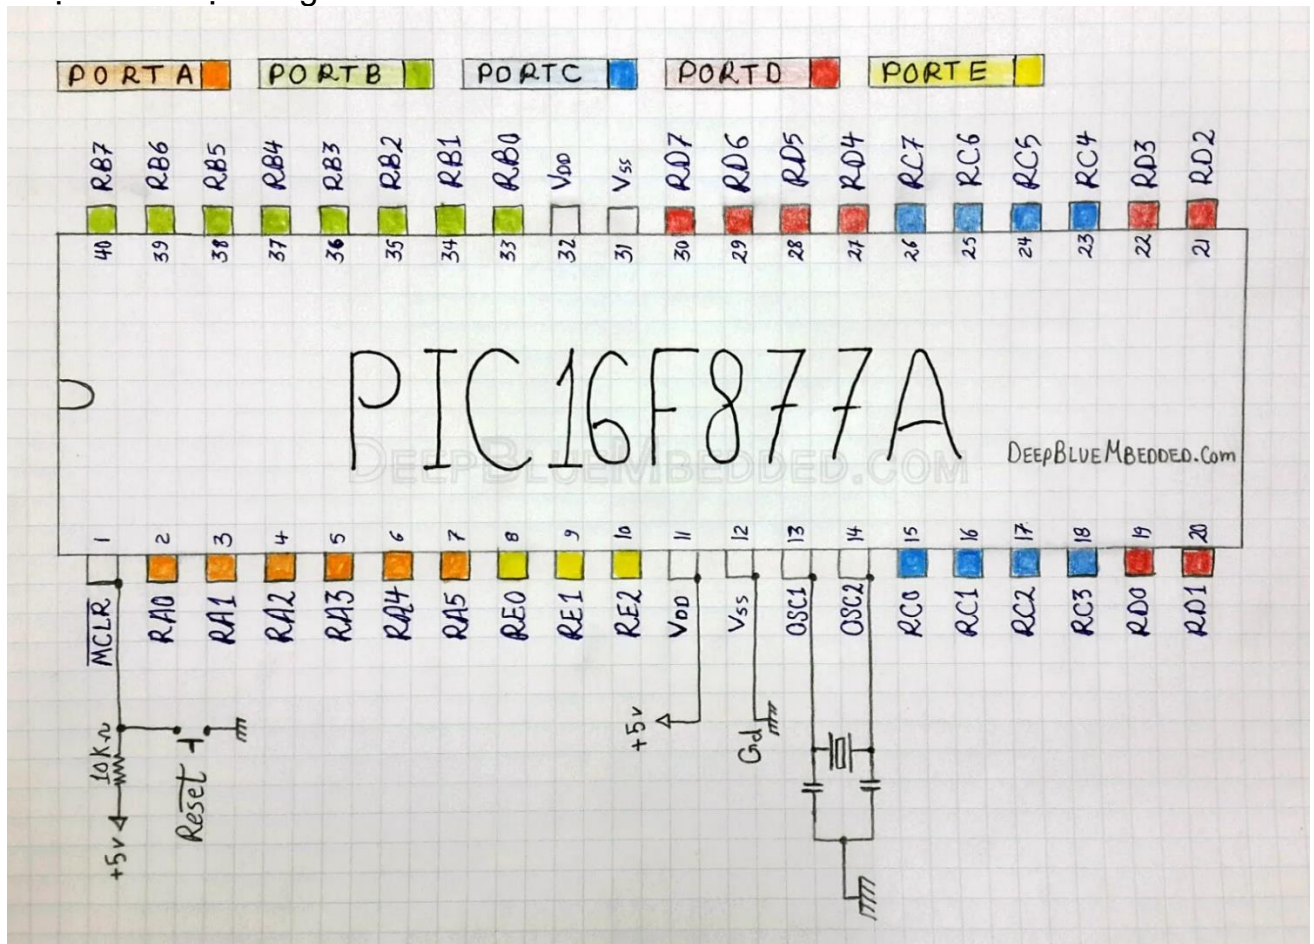 PORTA PORTB PORTC PORTD PORTE
RB7 RB6 RB5 RB4 RB3 RB2 RB1 RB0 VDD Vss RD7 RD6 RD5 RD4 RC7 RC6 RC5 RC4 RD3 RD2
40 39 38 37 36 35 34 33 32 31 30 29 28 27 26 25 24 23 22 21
PIC16F877A
DEEPBLUEMBEDDED.COM
DEEPBLUEMBEDDED.Com
1 2 3 4 5 6 7 8 9 10 11 12 13 14 15 16 17 18 19 20
MCLR RA0 RA1 RA2 RA3 RA4 RA5 RE0 RE1 RE2 VDD Vss OSC1 OSC2 RC0 RC1 RC2 RC3 RD0 RD1
10KΩ
Reset
+5v
+5v
Gd